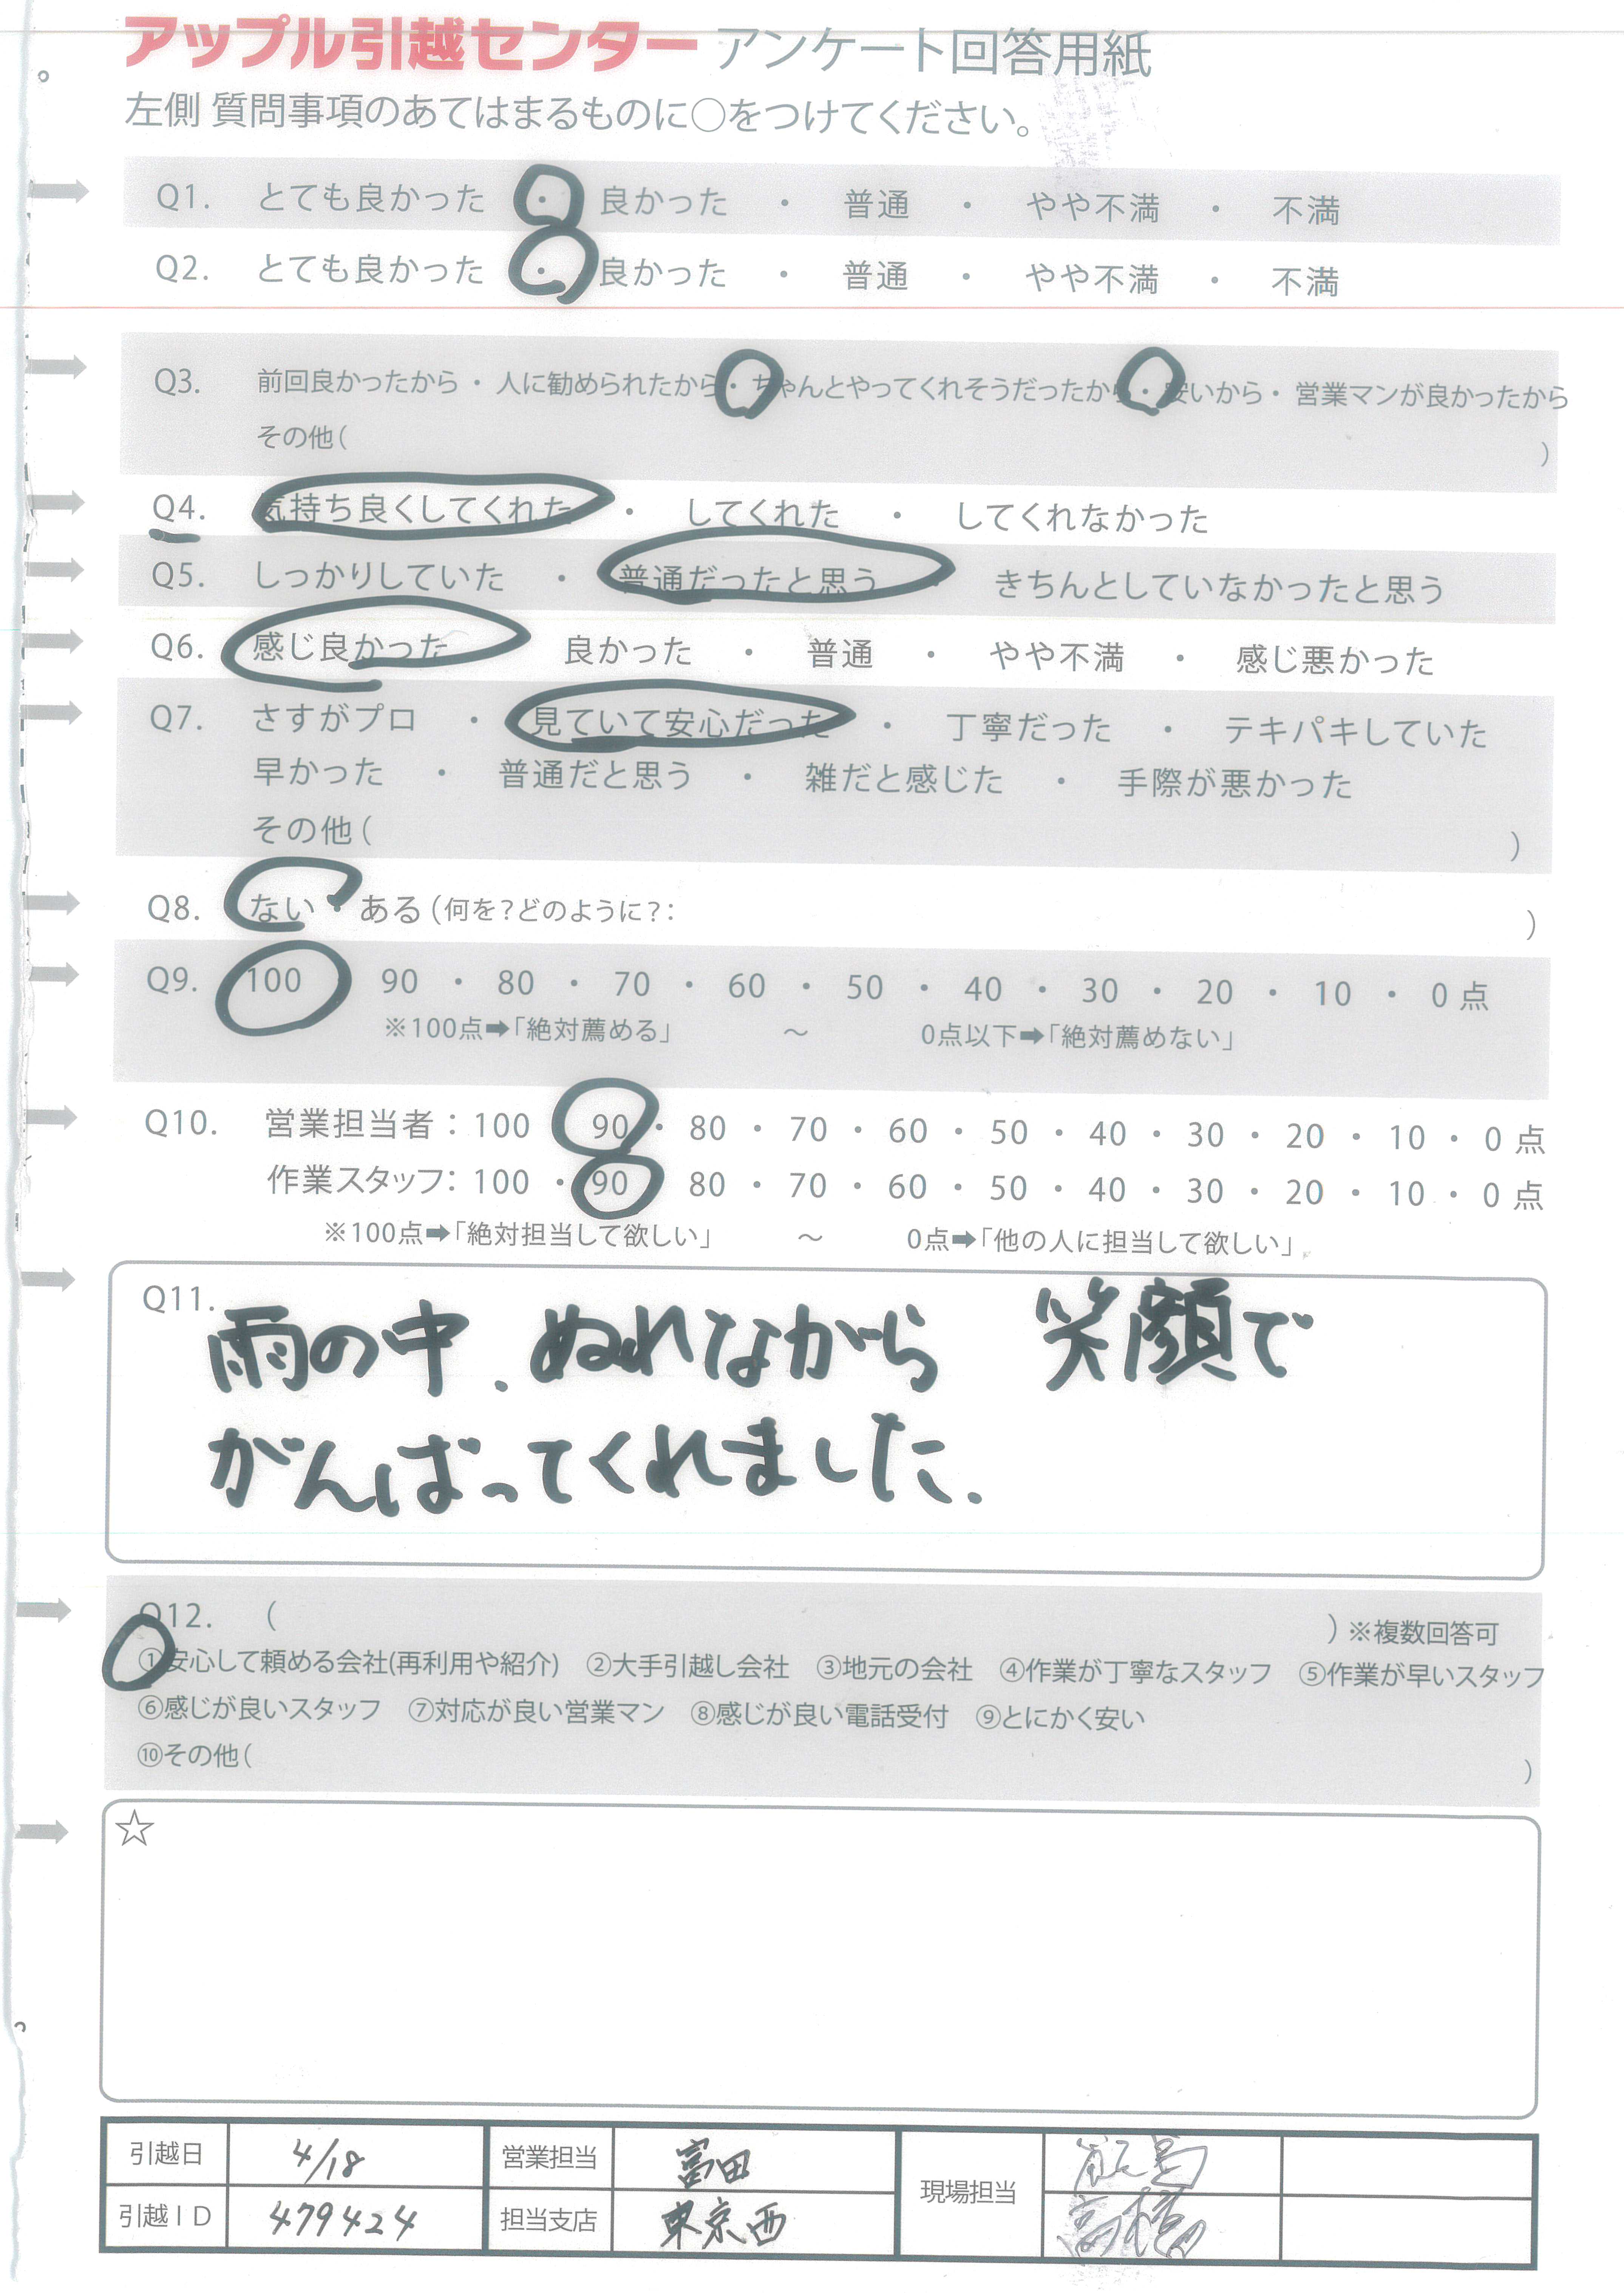 アップル引越センター アンケート回答用紙
左側 質問事項のあてはまるものに○をつけてください。
Q1. とても良かった ・ 良かった ・ 普通 ・ やや不満 ・ 不満
Q2. とても良かった ・ 良かった ・ 普通 ・ やや不満 ・ 不満
Q3. 前回良かったから ・ 人に勧められたから ・ ちゃんとやってくれそうだったから ・ 安いから ・ 営業マンが良かったから
その他( )
Q4. 気持ち良くしてくれた ・ してくれた ・ してくれなかった
Q5. しっかりしていた ・ 普通だったと思う ・ きちんとしていなかったと思う
Q6. 感じ良かった 良かった ・ 普通 ・ やや不満 ・ 感じ悪かった
Q7. さすがプロ ・ 見ていて安心だった ・ 丁寧だった ・ テキパキしていた
早かった ・ 普通だと思う ・ 雑だと感じた ・ 手際が悪かった
その他( )
Q8. ない ・ ある (何を?どのように?: )
Q9. 100 90 ・ 80 ・ 70 ・ 60 ・ 50 ・ 40 ・ 30 ・ 20 ・ 10 ・ 0 点
※100点➡「絶対薦める」 ～ 0点以下➡「絶対薦めない」
Q10. 営業担当者：100 90 ・ 80 ・ 70 ・ 60 ・ 50 ・ 40 ・ 30 ・ 20 ・ 10 ・ 0 点
作業スタッフ：100 ・ 90 80 ・ 70 ・ 60 ・ 50 ・ 40 ・ 30 ・ 20 ・ 10 ・ 0 点
※100点➡「絶対担当して欲しい」 ～ 0点➡「他の人に担当して欲しい」
Q11. 雨の中、ぬれながら 笑顔で
がんばってくれました.
Q12. ( ) ※複数回答可
①安心して頼める会社(再利用や紹介) ②大手引越し会社 ③地元の会社 ④作業が丁寧なスタッフ ⑤作業が早いスタッフ
⑥感じが良いスタッフ ⑦対応が良い営業マン ⑧感じが良い電話受付 ⑨とにかく安い
⑩その他( )
☆
引越日 4/18 営業担当 富田 現場担当
引越ＩＤ 479424 担当支店 東京西 高橋